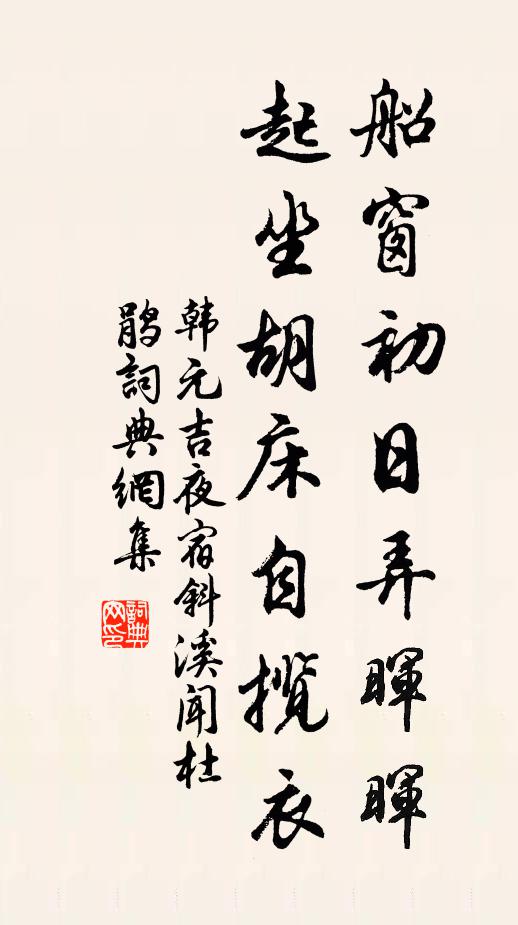 船窗初日弄暉暉
起坐胡床自攬衣
韩元吉夜宿斜溪闻杜
鹃詞典網集
詞典网印